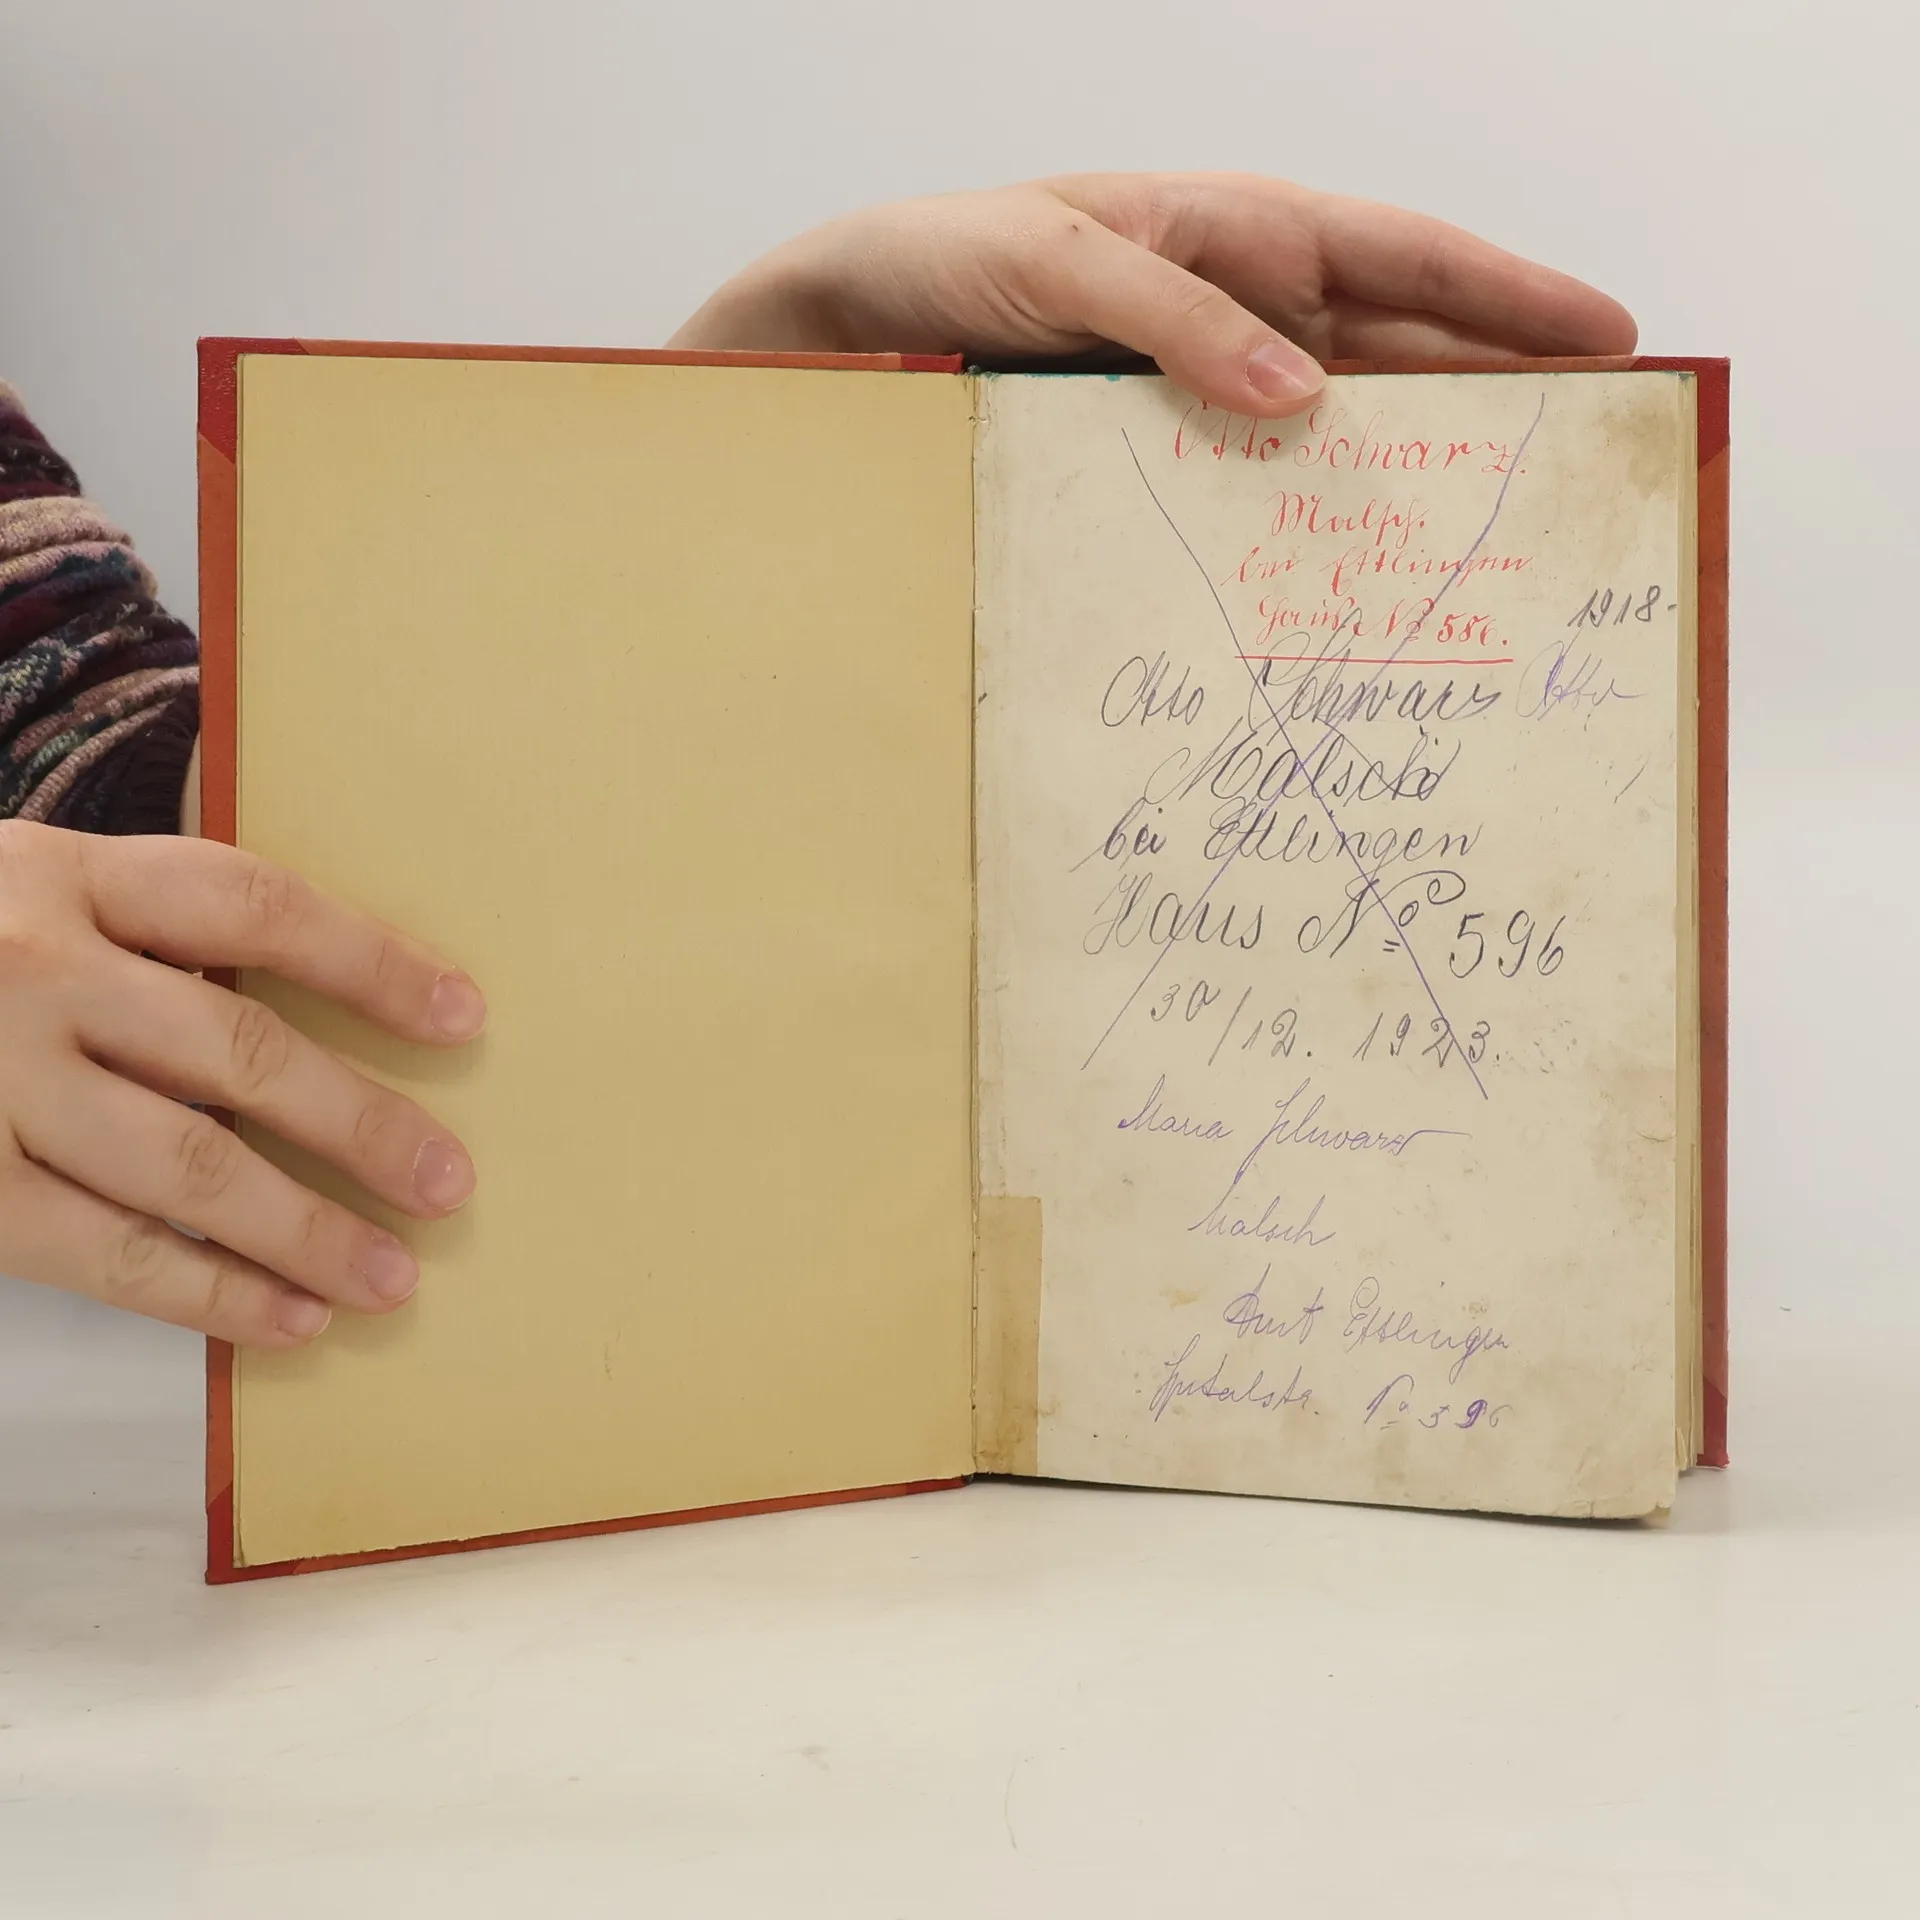 Otto Schwarz.
Malsch.
bei Ettlingen
Haus No 586.
1918-
Otto Schwarz Otto
Malsch
bei Ettlingen
Haus No 596
30/12. 1923.
Maria Schwarz
Malsch
Amt Ettlingen
Spitalstr. No 596